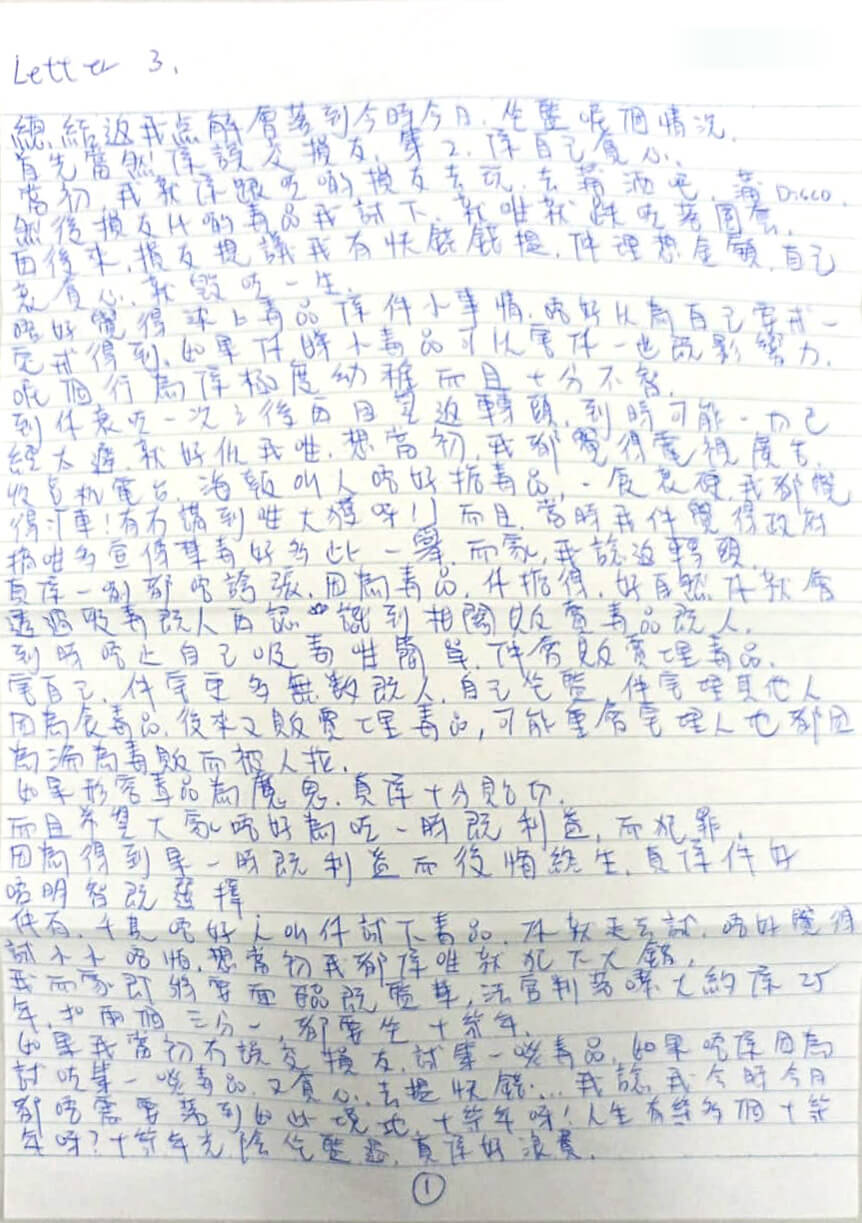 Letter 3.
總結返我點解會落到今時今日，坐監呢個情況.
首先當然係誤交損友，第2，係自己貪心.
當初，我就係跟咗啲損友去玩，去蒲酒吧，蒲Disco.
然後損友比啲毒品我試下，就咁就跌咗落圈套.
而後來，損友提議我有快錢搵，仲理想金額，自己
衰貪心，就毀咗一生.
唔好覺得染上毒品係件小事情，唔好以為自己要戒一
定戒得到，如果仲睇小毒品可以害人一世既影響力，
呢個行為係極度幼稚而且十分不智.
到你衰咗一次之後再回望返轉頭，到時可能一切已
經太遲，就好似我咁，想當初，我都覺得電視廣告，
收音机電台，海報叫人唔好掂毒品，一食衰硬，我都覺
得！有冇講到咁大獲呀！！而且，當時我仲覺得政府
搞咁多宣傳禁毒好多此一舉，而家，我諗返轉頭，
真係一啲都唔誇張，因為毒品，你掂得，好自然你就會
透過吸毒既人而認識到相關販賣毒品既人.
到時唔止自己吸毒咁簡單，仲會販賣埋毒品.
害自己，仲害更多無數既人，自己坐監，仲害埋其他人
因為食毒品，後來又販賣埋毒品，可能重會害埋人地都因
為淪為毒販而被人拉.
如果形容毒品為魔鬼，真係十分貼切.
而且希望大家唔好為咗一時既利益，而犯罪，
因為得到果一時既利益而後悔終生，真係件好
唔明智既選擇
仲有，千其唔好人叫你試下毒品，你就走去試，唔好覺得
試小小唔怕，想當初我都係咁就犯下大錯，
我而家即將要面臨既監牢，法官判落嚟大約係25
年，扣兩個三分一，都要坐十幾年.
如果我當初冇誤交損友，試第一啖毒品，如果唔係因為
試咗第一啖毒品，又貪心，去搵快錢…，我諗我今時今日
都唔需要落到如此境地，十幾年呀！人生有幾多個十幾
年呀？十幾年光陰坐監，真係好浪費.
①